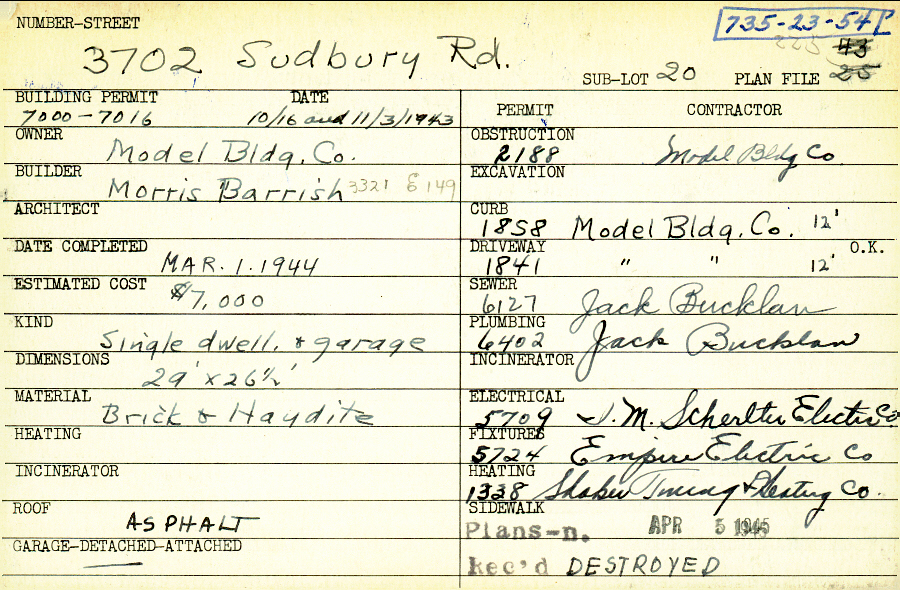 NUMBER-STREET
735-23-54
3702 Sudbury Rd.
43
SUB-LOT 20 PLAN FILE 25
BUILDING PERMIT DATE
7000-7016 10/16 and 11/3/1943
OWNER
Model Bldg. Co.
BUILDER
Morris Barrish 3321 E 149
ARCHITECT
DATE COMPLETED
MAR. 1. 1944
ESTIMATED COST
$7,000
KIND
Single dwell. & garage
DIMENSIONS
29' x 26½'
MATERIAL
Brick & Haydite
HEATING
INCINERATOR
ROOF
ASPHALT
GARAGE-DETACHED-ATTACHED
PERMIT CONTRACTOR
OBSTRUCTION
2188 Model Bldg Co.
EXCAVATION
CURB
1858 Model Bldg. Co. 12'
DRIVEWAY O.K.
1841 " " 12'
SEWER
6127 Jack Bucklan
PLUMBING
6402 Jack Bucklan
INCINERATOR
ELECTRICAL
5709 M. Electric Co
FIXTURES
5724 Empire Electric Co
HEATING
1338 Shaker & Heating Co.
SIDEWALK
Plans-n. APR 5 1946
Rec'd DESTROYED